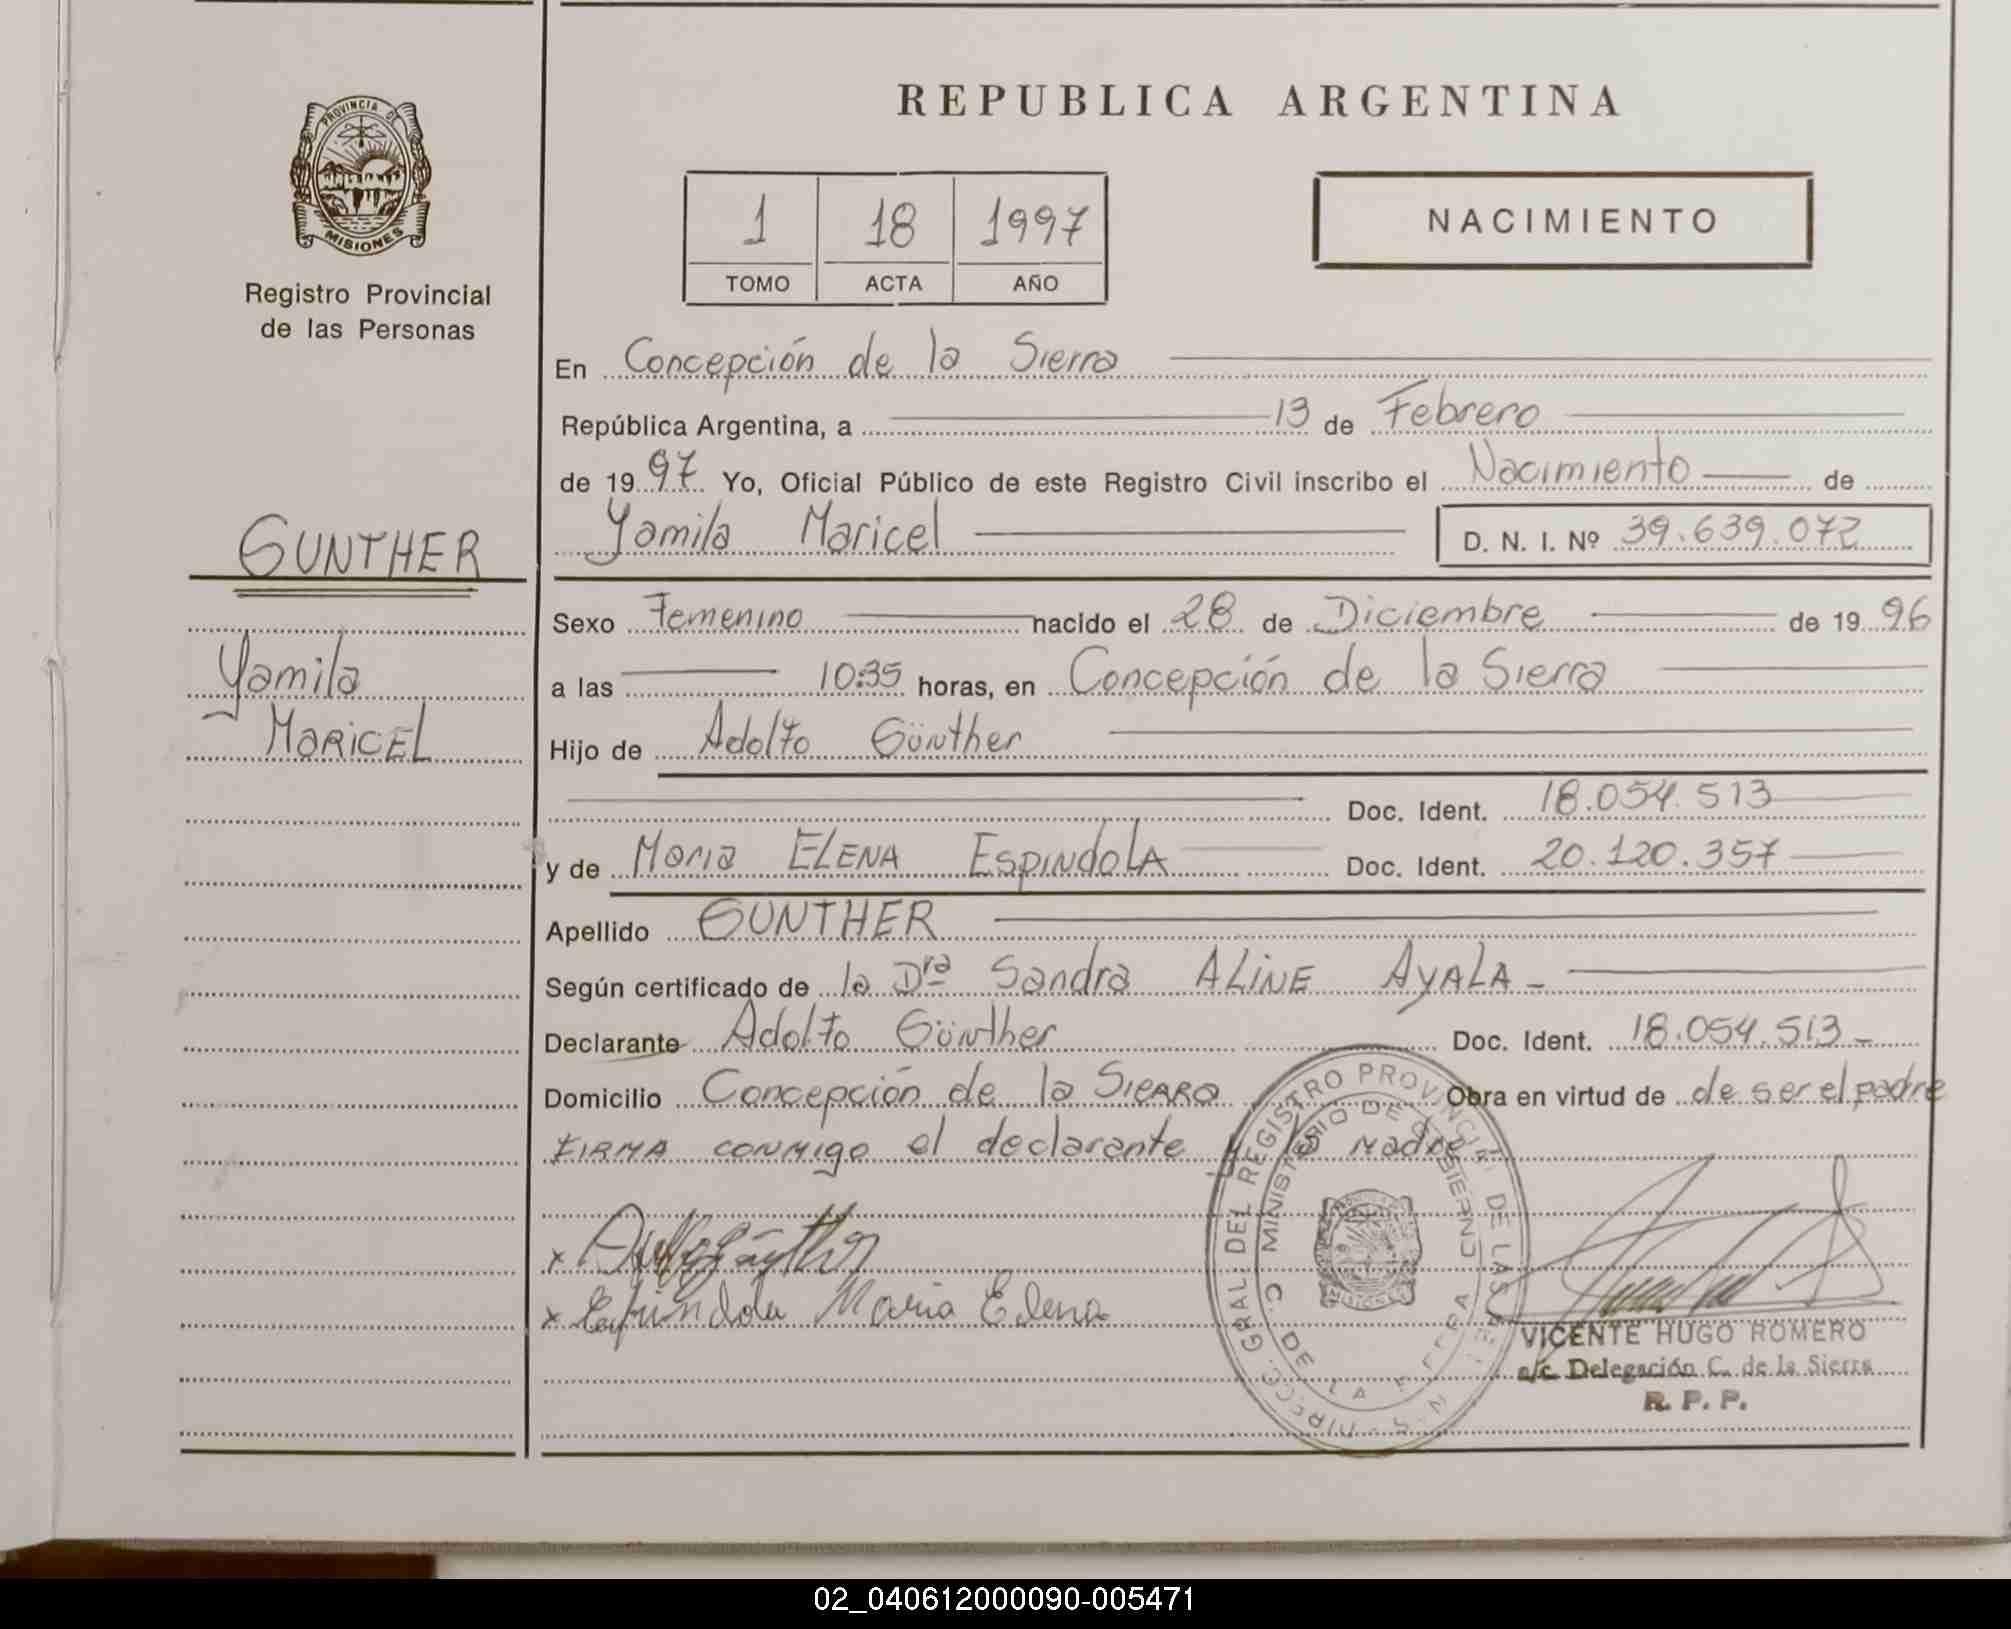 REPUBLICA ARGENTINA
PROVINCIA DE
MISIONES
Registro Provincial
de las Personas
1 18 1997
TOMO ACTA AÑO
NACIMIENTO
En Concepción de la Sierra
República Argentina, a 13 de Febrero
de 1997 Yo, Oficial Público de este Registro Civil inscribo el Nacimiento de
Yamila Maricel D. N. I. Nº 39.639.072
GUNTHER
Yamila
MARICEL
Sexo Femenino nacido el 28 de Diciembre de 1996
a las 10:35 horas, en Concepción de la Sierra
Hijo de Adolfo Günther
Doc. Ident. 18.054.513
y de Maria ELENA ESPINDOLA Doc. Ident. 20.120.357
Apellido GUNTHER
Según certificado de la Dra Sandra ALINE AYALA -
Declarante Adolfo Günther Doc. Ident. 18.054.513 -
Domicilio Concepción de la SIERRA Obra en virtud de de ser el padre
FIRMA CONMIGO el declarante y la Madre
x
x Espindola Maria Elena
DIRECC. GRAL. DEL REGISTRO PROVINCIAL DE LAS
MINISTERIO DE GOBIERNO
C. DE LA SIERRA
MISIONES
VICENTE HUGO ROMERO
a/c. Delegación C. de la Sierra
R. P. P.
02_040612000090-005471